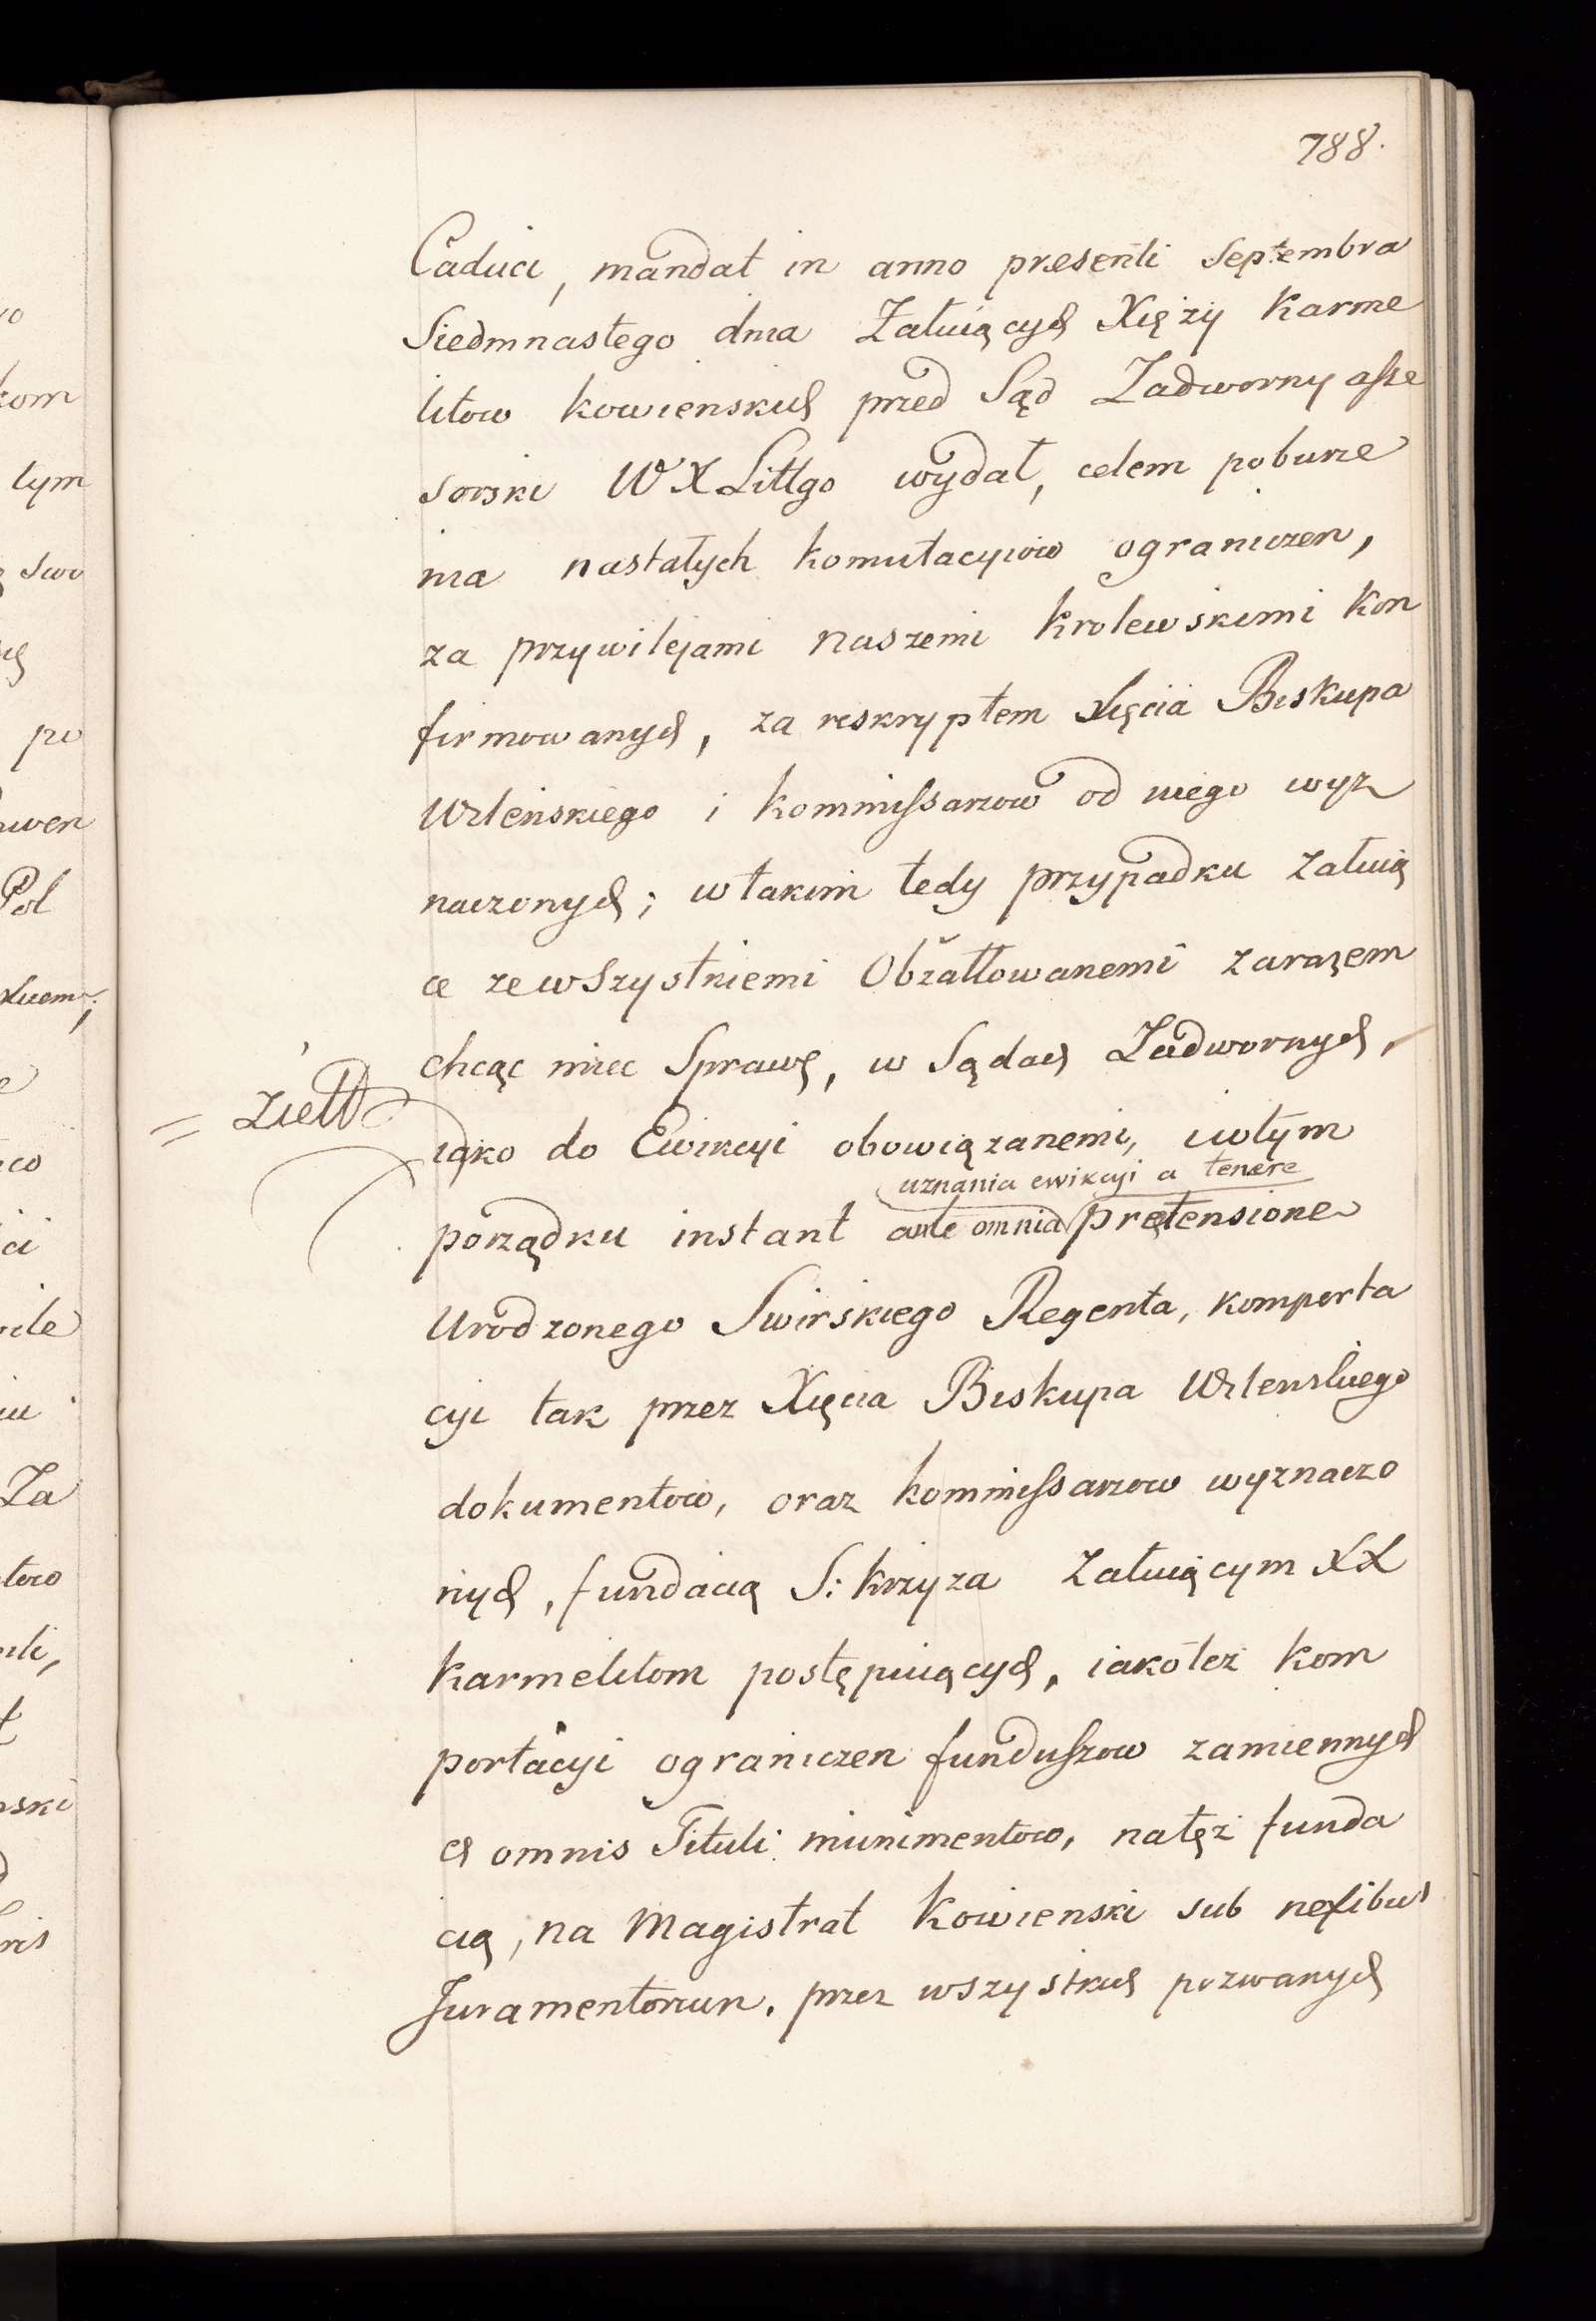 788.
Caduci, mandat in anno presenti Septembra
Siedmnastego dnia Załuiących Xięży Karme
litow kowienskich przed Sąd Zadworny asse
sorski W X Littgo wydał, celem poburze
nia nastałych komutacyiow ograniczen,
za przywilejami naszemi krolewskimi kon
firmowanych, za reskryptem Xięcia Biskupa
Wileńskiego i kommissarzow od niego wyz
naczonych; w takim tedy przypadku załuią
ce ze wszystkiemi Obżałłowanemi zarazem
chcąc miec Sprawę, w Sądach Zadwornych,
= Ziełł
iako do Ewikcyi obowiązanemi, iwtym
uznania ewikcyi a tenere
porządku instant ante omnia pretensione
Urodzonego Swirskiego Regenta, komporta
cyi tak przez Xięcia Biskupa Wilenskiego
dokumentow, oraz kommissarzow wyznaczo
nych, fundacią S: krzyza załuiącym XX
karmelitom postępuiących, iakoteż kom
portacyi ograniczen funduszow zamiennych
et omnis Tituli munimentow, natęż funda
cią, na Magistrat Kowienski sub nexibus
Juramentorum, przez wszystkich pozwanych